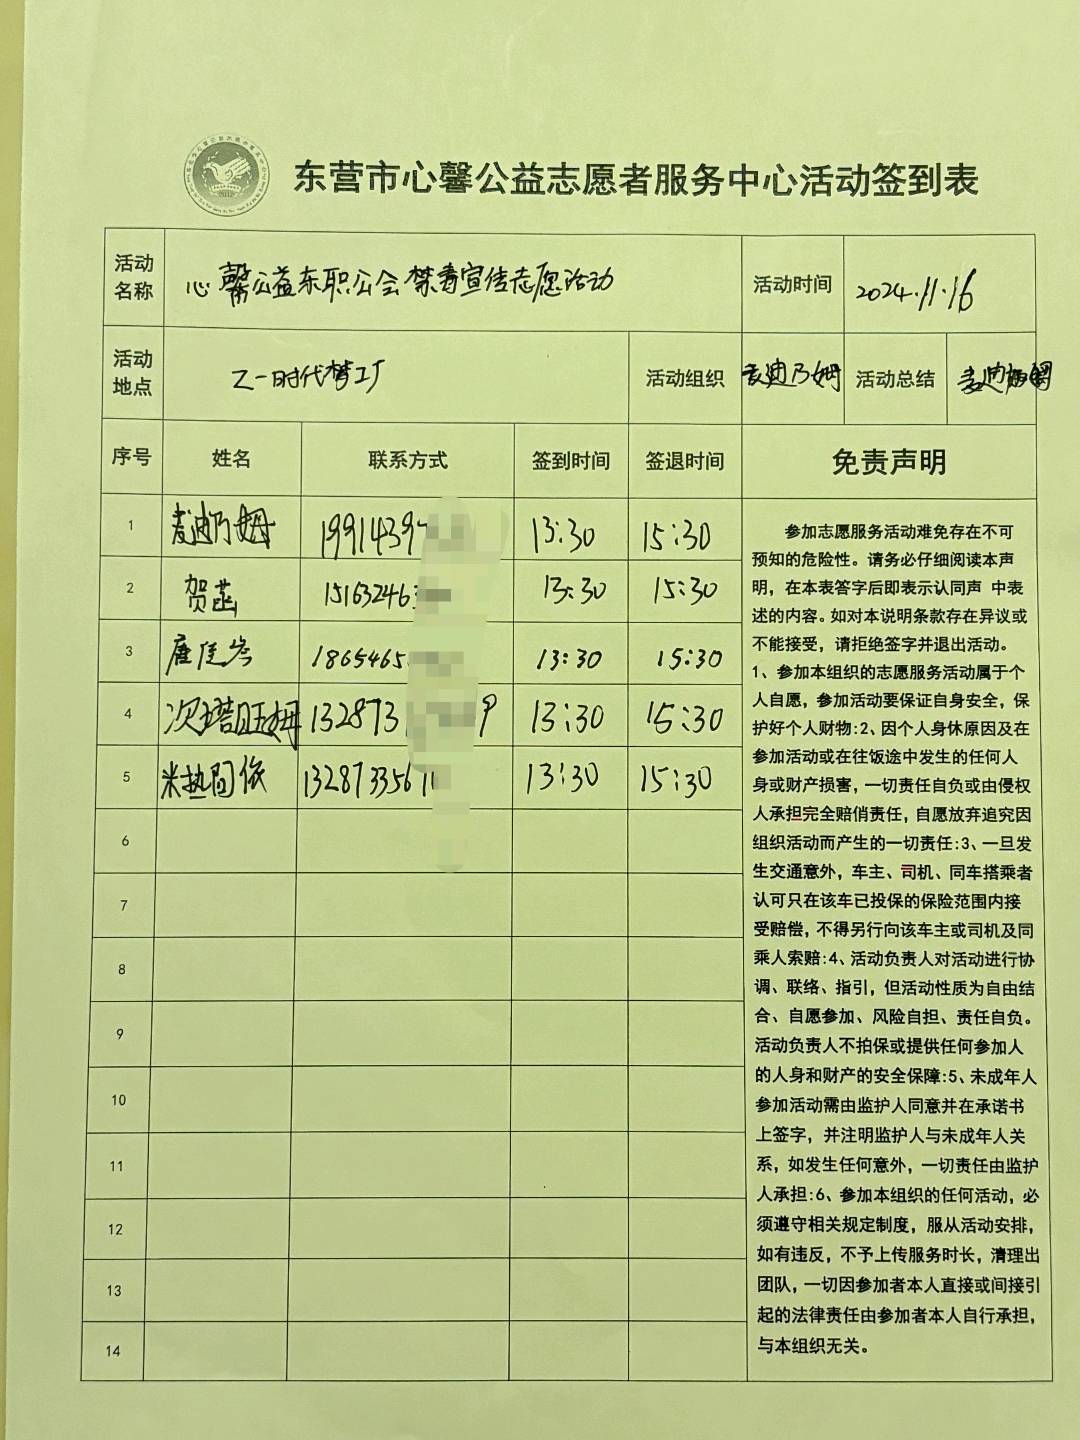 东营市心馨公益志愿者服务中心活动签到表
活动名称 心馨公益东职公会禁毒宣传志愿活动 活动时间 2024.11.16
活动地点 乙一时代梦工厂 活动组织 麦迪乃姆 活动总结
序号 姓名 联系方式 签到时间 签退时间 免责声明
1 麦迪乃姆 19914397 13:30 15:30
2 贺菡 151632463 13:30 15:30
3 唐佳岑 1865465 13:30 15:30
4 次塔旺姆 132873 9 13:30 15:30
5 米热阁依 1328733561 13:30 15:30
6
7
8
9
10
11
12
13
14
参加志愿服务活动难免存在不可
预知的危险性。请务必仔细阅读本声
明，在本表答字后即表示认同声 中表
述的内容。如对本说明条款存在异议或
不能接受，请拒绝签字并退出活动。
1、参加本组织的志愿服务活动属于个
人自愿，参加活动要保证自身安全，保
护好个人财物:2、因个人身休原因及在
参加活动或在往饭途中发生的任何人
身或财产损害，一切责任自负或由侵权
人承担完全赔俏责任，自愿放弃追究因
组织活动而产生的一切责任:3、一旦发
生交通意外，车主、司机、同车搭乘者
认可只在该车已投保的保险范围内接
受赔偿，不得另行向该车主或司机及同
乘人索赔:4、活动负责人对活动进行协
调、联络、指引，但活动性质为自由结
合、自愿参加、风险自担、责任自负。
活动负责人不拍保或提供任何参加人
的人身和财产的安全保障:5、未成年人
参加活动需由监护人同意并在承诺书
上签字，并注明监护人与未成年人关
系，如发生任何意外，一切责任由监护
人承担:6、参加本组织的任何活动，必
须遵守相关规定制度，服从活动安排，
如有违反，不予上传服务时长，清理出
团队，一切因参加者本人直接或间接引
起的法律责任由参加者本人自行承担，
与本组织无关。